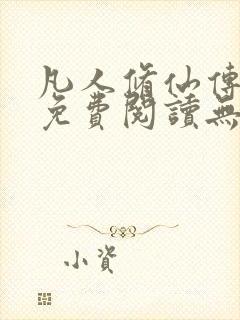 凡人脩仙傳
免費閱讀無
小資